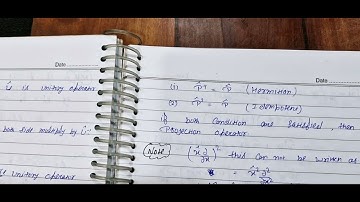 Date
is a unitary operator
both side multiply by
unitary operator
Date
(1) P̂† = P̂ (Hermition)
(2) P̂² = P̂ (Idempotent)
If both Condition are satisfied, then
Projection operator
Note (x̂ ∂/∂x)² this can not be written as
= x̂² ∂²/∂x²